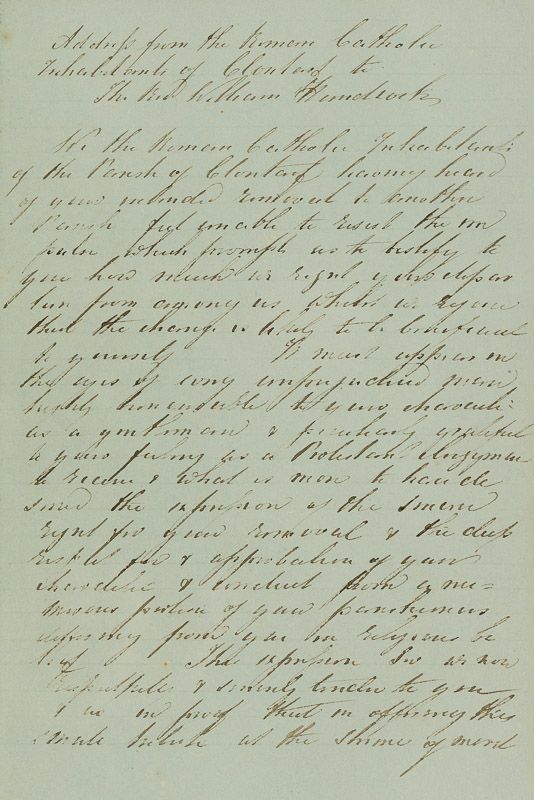 Address from the Roman Catholic
Inhabitants of Clontarf to
The Rev William Handcock

We the Roman Catholic Inhabitants
of the Parish of Clontarf having heard
of your intended removal to another
Parish feel unable to resist the im
pulse which prompts us to testify to
you how much we regret your depar
ture from among us whilst we rejoice
that the change is likely to be beneficial
to yourself It must appear in
the eyes of every unprejudiced man
highly honourable to your character
as a gentleman & peculiarly grateful
to your feelings as a Protestant Clergyman
to receive & what is more to have de
served the expression of the sincere
regret for your removal & the deep
respect for & approbation of your
character & conduct from a nu=
merous portion of your parishioners
differing from you in religious be
lief This expression Sir we now
respectfully & sincerely tender to you
& in proof that in offering this
small tribute at the shrine of merit